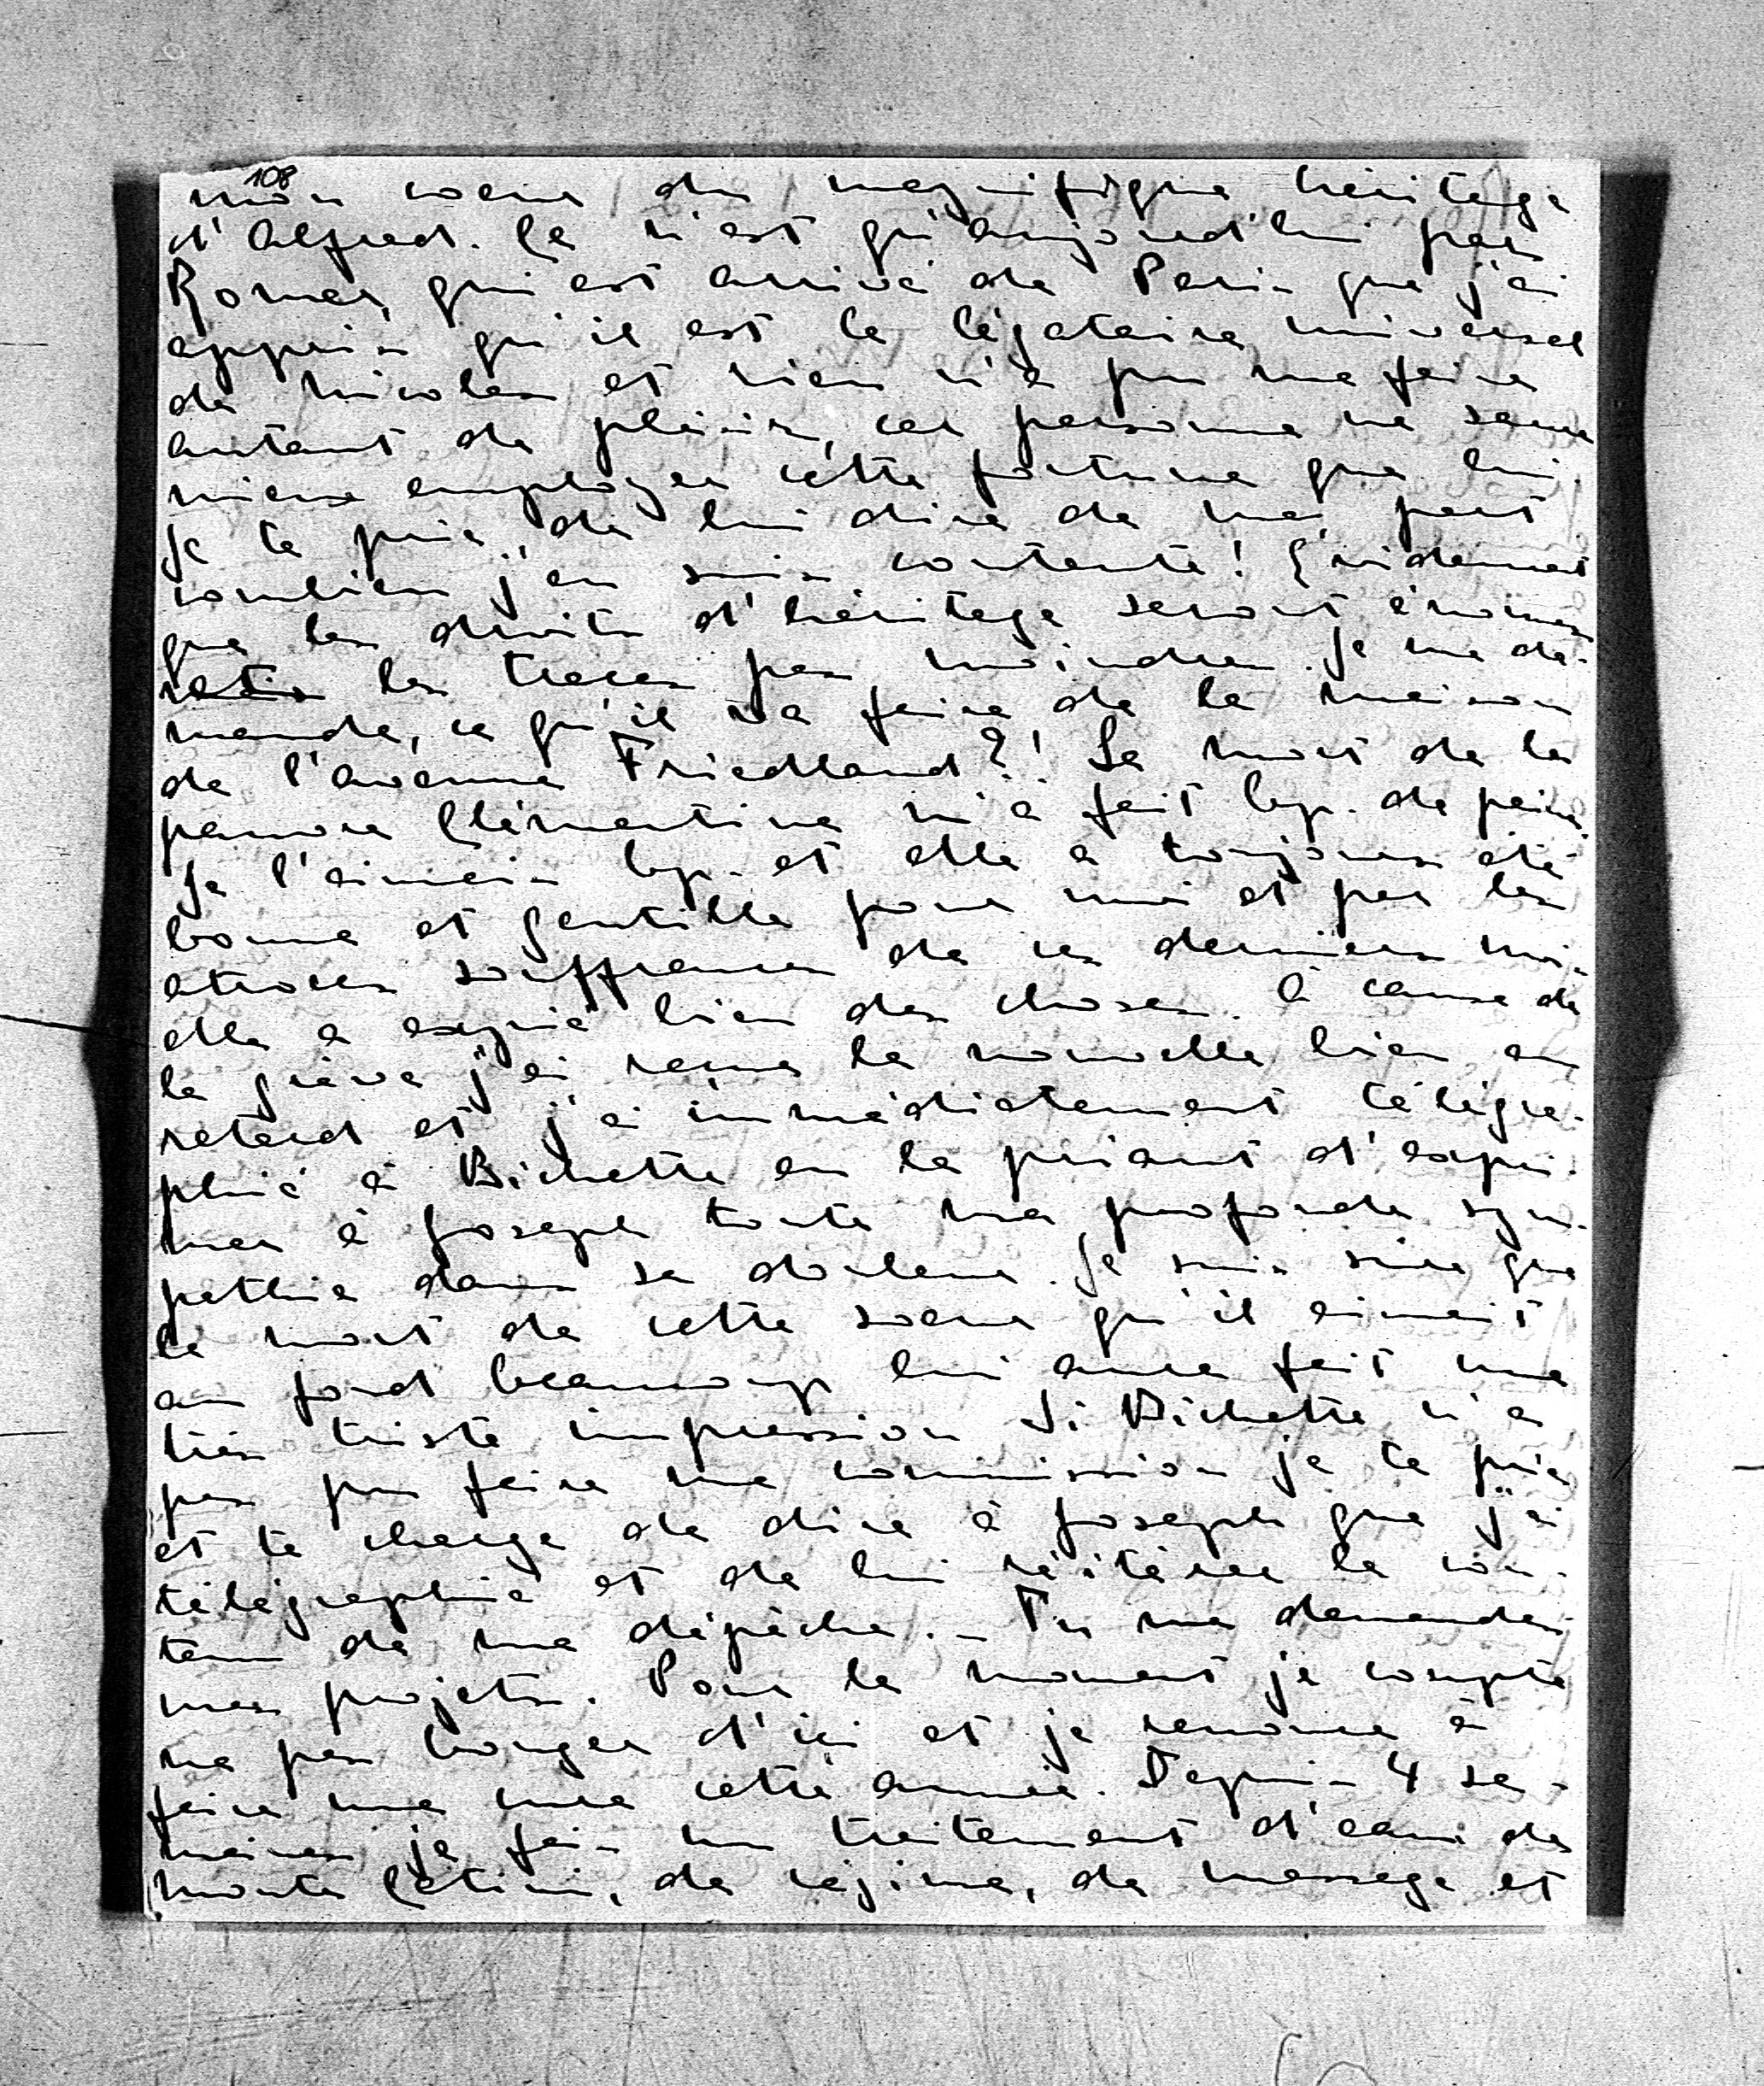 108
mon coeur du magnifique héritage
d'Alfred. Ce n'est qu'aujourd'hui par
Romer, qui est arrivé de Paris que j'ai
appris qu'il est le légataire universel
de Nicolas et rien n'a pu me faire
autant de plaisir, car personne ne saura
mieux employer cette fortune que lui.
Je te prie, de lui dire de ma part
combien j'en suis contente! Evidement
que les droits d'héritage seront énormes
les traces pas moindres. Je me de-
mande, ce qu'il va faire de la maison
de l'avenue Friedland?! La mort de la
pauvre Clémentine m'a fait bcp. de peine.
Je l'aimais bcp. et elle a toujours été
bonne et gentille pour moi et par les
atroces souffrances de ces derniers mois
elle a expié bien des choses. à cause de
la grève j'ai reçu la nouvelle bien en
retard et j'ai immédiatement télégra-
phié à Bichette en la priant d'expri-
mer à Joseph toute ma profonde sym-
pathie dans sa douleur. Je suis sûre que
la mort de cette soeur qu'il aimait
au fond beaucoup lui aura fait une
très triste impression Si Bichette n'a
pas pu faire ma commission je te prie
et te charge de dire à Joseph que j'ai
télégraphié et de lui réitérer le con-
tenu de ma dépêche. _ Tu me demandes
mes projets. Pour le moment je compte
ne pas bouger d'ici et je renonce à
faire une cure cette année. Depuis 4 se-
maines je fais un traitement d'eau de
monte Catini, de régime, de massage et